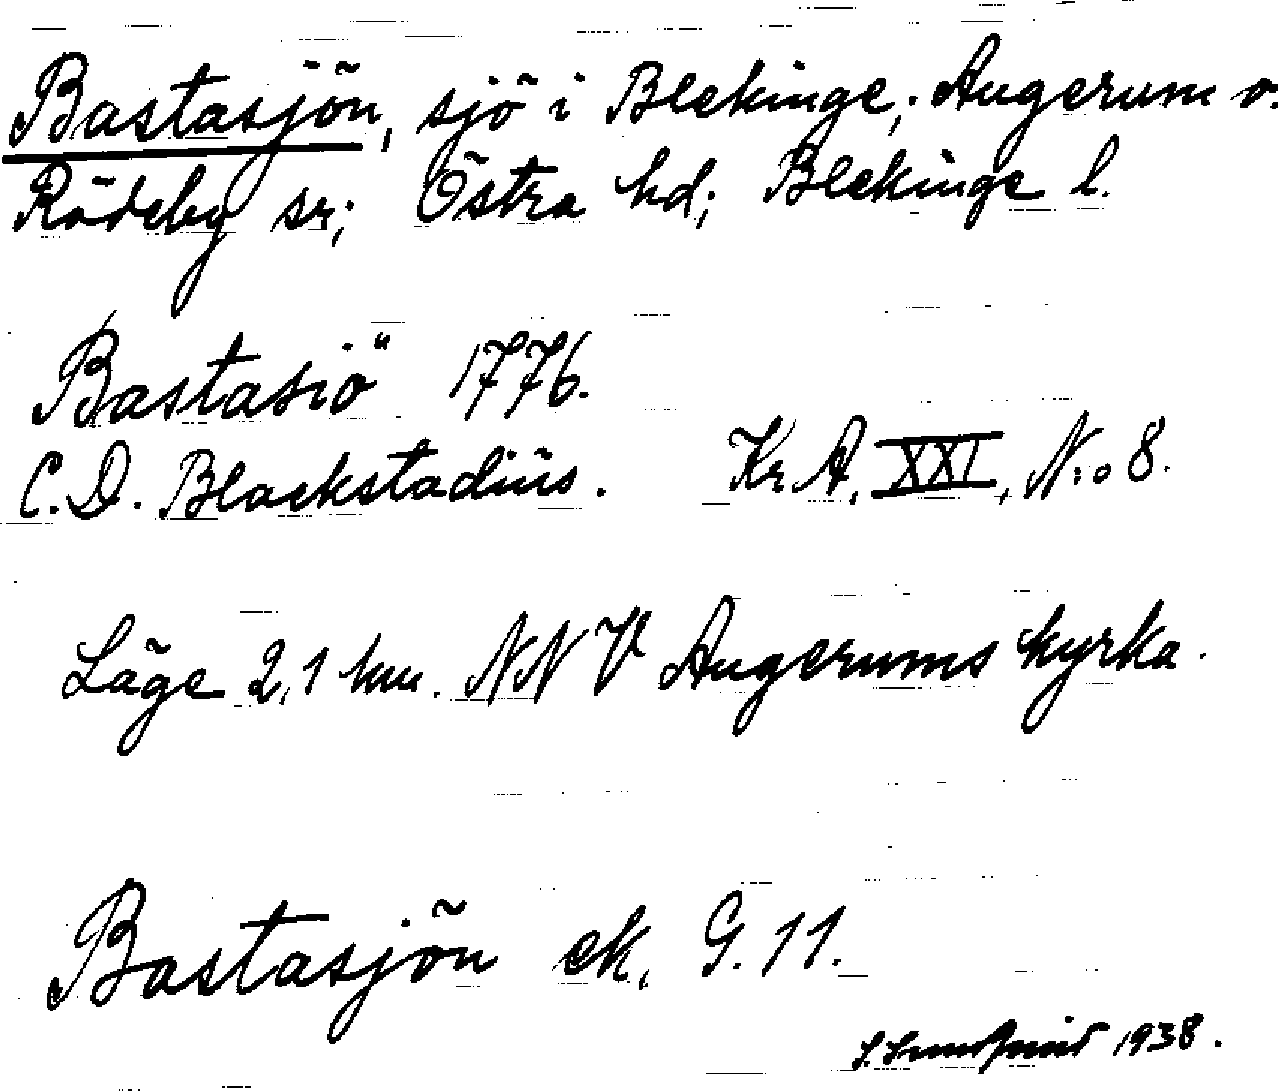 Bastasjön, sjö i Blekinge; Augerum o.
Rödeby sr; Östra hd; Blekinge l.
Bastasiö 1776.
C. D. Blackstadius. Kr. A. XXI, N:o 8.
Läge 2,1 km. NNV Augerums kyrka.
Bastasjön ek. G. 11.
1938.